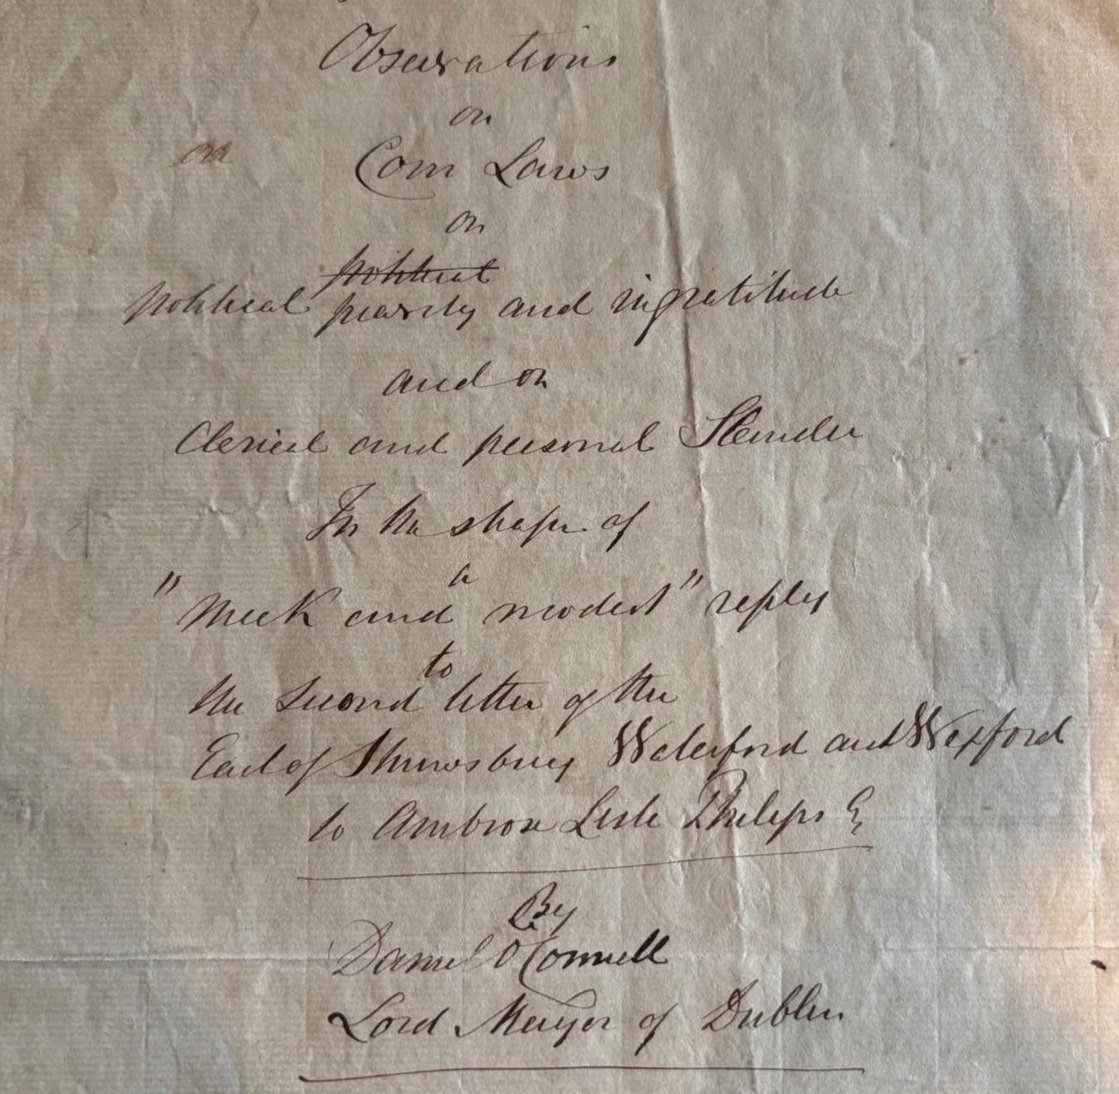 Observations
on
on Corn Laws
on
political
political pravity and ingratitude
and on
Clerical and personal Slander
In the shape of
a
"Meek and modest" reply
to
the second letter of the
Earl of Shrewsbury Waterford and Wexford
to Ambrose Lisle Philips E
By
Daniel O'Connell
Lord Mayor of Dublin